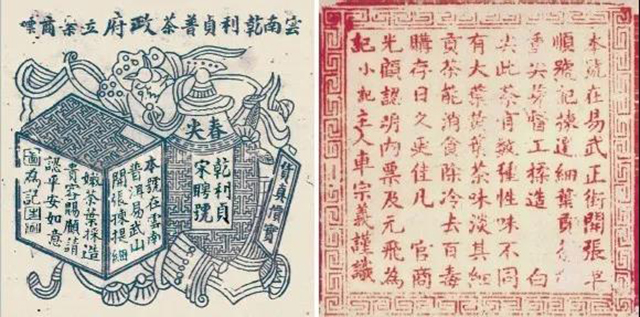 雲南乾利貞普茶政府立案商標
春尖
乾利貞
宋聘號
貨真價實
本號在雲南
普洱易武山
開張揀提細
嫩茶葉採造
貴客賜顧請
認平安如意
圖為記
本號在易武正街開張車
順號記揀選細葉貢
春尖芽督工揉造 白
尖此茶有數種性味不同
有大葉黃葉茶味淡其細
貢茶能消食除冷去百毒
購存日久更佳凡 官商
光顧認明內票及元飛為
記 小記主人車宗義謹識